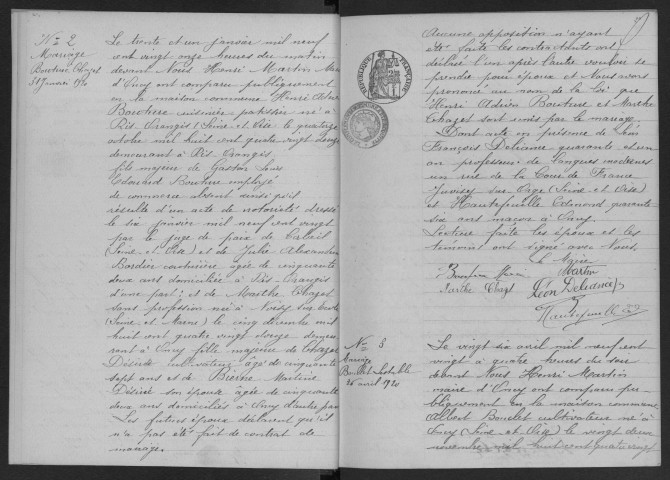 No 2
Mariage
31 Janvier 1920
Le trente et un janvier mil neuf
cent vingt onze heures du matin
devant Nous Henri Martin Maire
d'Oncy ont comparu publiquement
en la maison commune Henri
cuisinier patissier né à
Ris Orangis (Seine et Oise) le quatorze
octobre mil huit cent quatre vingt
demeurant à Ris Orangis
fils majeur de Gaston Louis
Edouard employé
de commerce absent ainsi qu'il
résulte d'un acte de notoriété dressé
le six janvier mil neuf cent vingt
par le juge de paix de Corbeil
(Seine et Oise) et de Julie Alexandrine
couturière âgée de cinquante
deux ans domiciliée à Ris Orangis
d'une part; et de Marthe Chazet
sans profession née à Noisy sur Ecole
(Seine et Marne) le cinq décembre mil
huit cent quatre vingt
à Oncy fille majeure de Chazet
Désiré cultivateur âgé de cinquante
sept ans et de
Désiré son épouse âgée de cinquante
deux ans domiciliés à Oncy d'autre part
Les futurs époux déclarent qu'il
n'a pas été fait de contrat de
mariage.
Aucune opposition n'ayant
été faite les contractants ont
déclaré l'un après l'autre vouloir se
prendre pour époux et Nous avons
prononcé au nom de la loi que
Henri Adrien et Marthe
Chazet sont unis par le mariage
Dont acte en présence de Léon
François Deliance quarante et un
ans professeur de langues modernes
rue de la Cour de France
Juvisy sur Orge (Seine et Oise)
et Hautefeuille Edmond quarante
six ans maçon à Oncy.
Lecture faite les époux et les
témoins ont signé avec Nous.
le Maire
Martin
Marthe Chazet Léon Deliance
Hautefeuille
REPUBLIQUE FRANÇAISE
No 3
Mariage
26 avril 1920
Le vingt six avril mil neuf cent
vingt à quatre heures du soir
devant Nous Henri Martin
maire d'Oncy ont comparu pu-
bliquement en la maison commune
Albert cultivateur né à
Oncy (Seine et Oise) le vingt deux
novembre mil huit cent quatre vingt